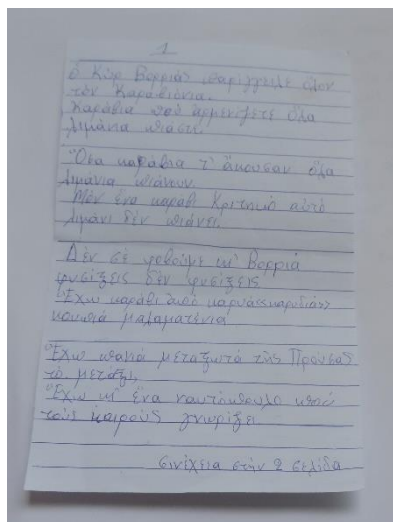 1
ὁ Κύρ Βορριάς παρίγγειλε ὅλον
τόν Καραβιόνια.
Καράβια πού ἀρμενίζετε ὅλα
λιμάνια πιάστε.
Ὅσα καράβια τ' ἄκουσαν ὅλα
λιμάνια πιάνουν.
Μόν ἕνα καράβι Κριτηκό αὐτό
λιμάνι δέν πιάνει.
Δέν σέ φοβοῦμε κι' Βορριά
φυσίξεις δέν φυσίξεις
Ἔχω καράβι ἀπό καρυά
κουπιά μαλαματένια
Ἔχω πανιά μεταξωτά τῆς Προυσας
τό μετάξι,
Ἔχω κι' ἕνα ναυτόπουλο πού
τούς καιρούς γνωρίζει
σινέχεια στήν 2 σελίδα